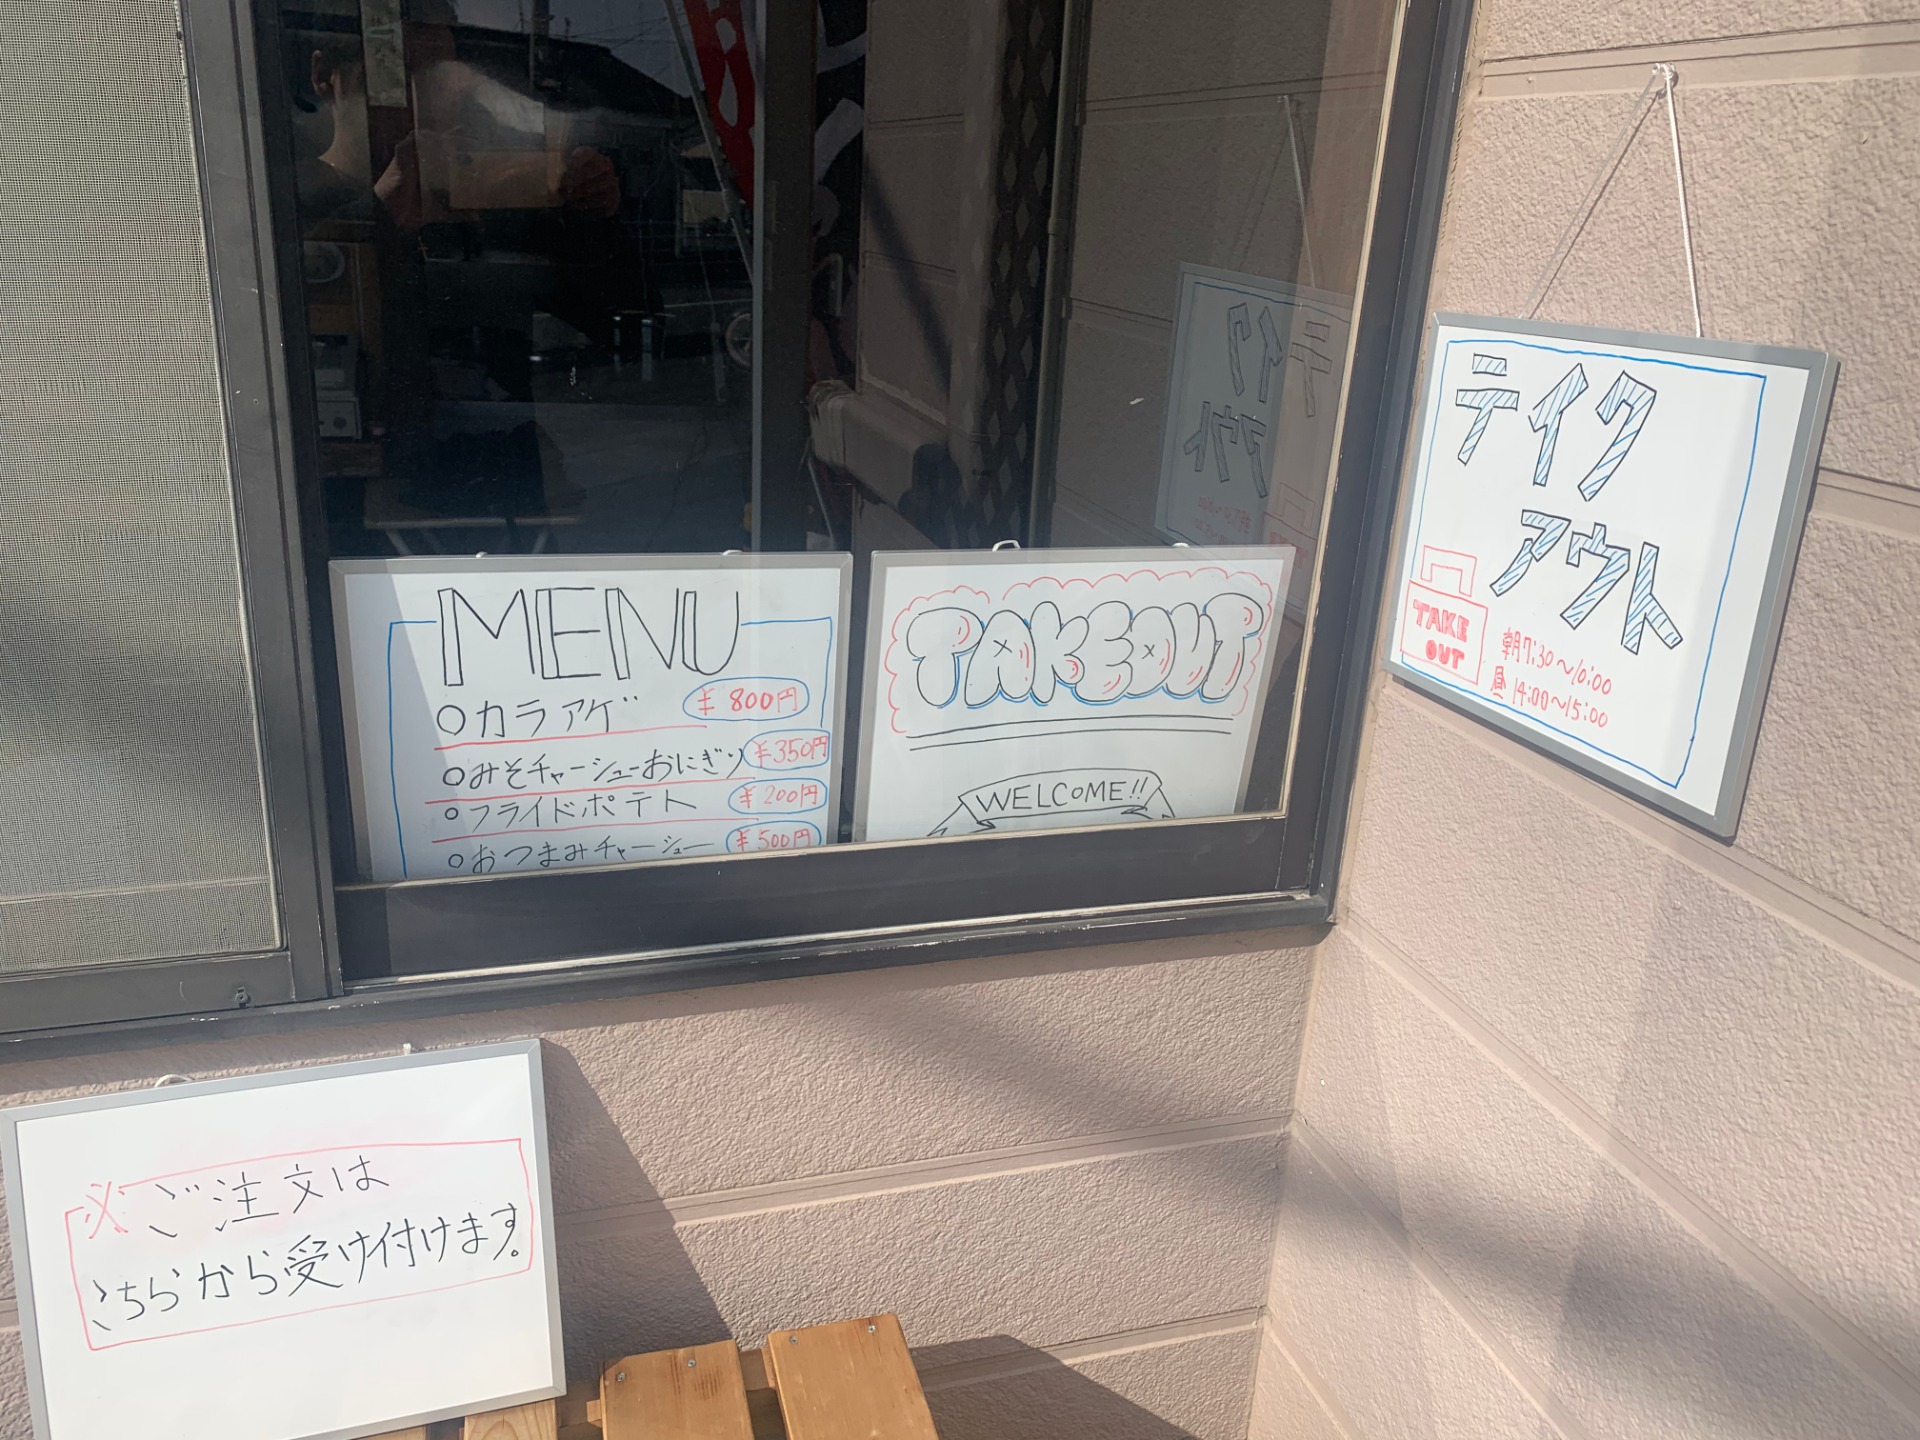 MENU
○カラアゲ ¥800円
○みそチャーシューおにぎり ¥350円
○フライドポテト ¥200円
○おつまみチャーシュー ¥500円
TAKEOUT
WELCOME!!
テイク
アウト
TAKE
OUT
朝7:30~10:00
昼14:00~15:00
※ご注文は
こちらから受け付けます。